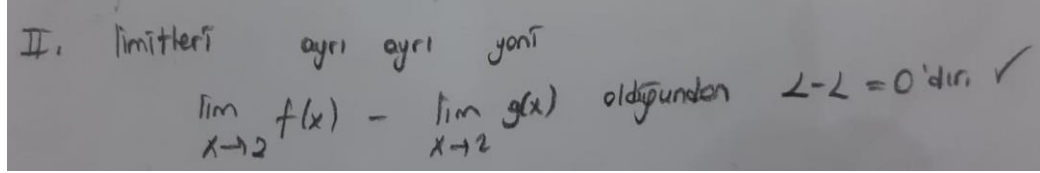 II. limitleri ayrı ayrı yani
lim x→2 f(x) - lim x→2 g(x) olduğundan L-L = 0'dır. ✓